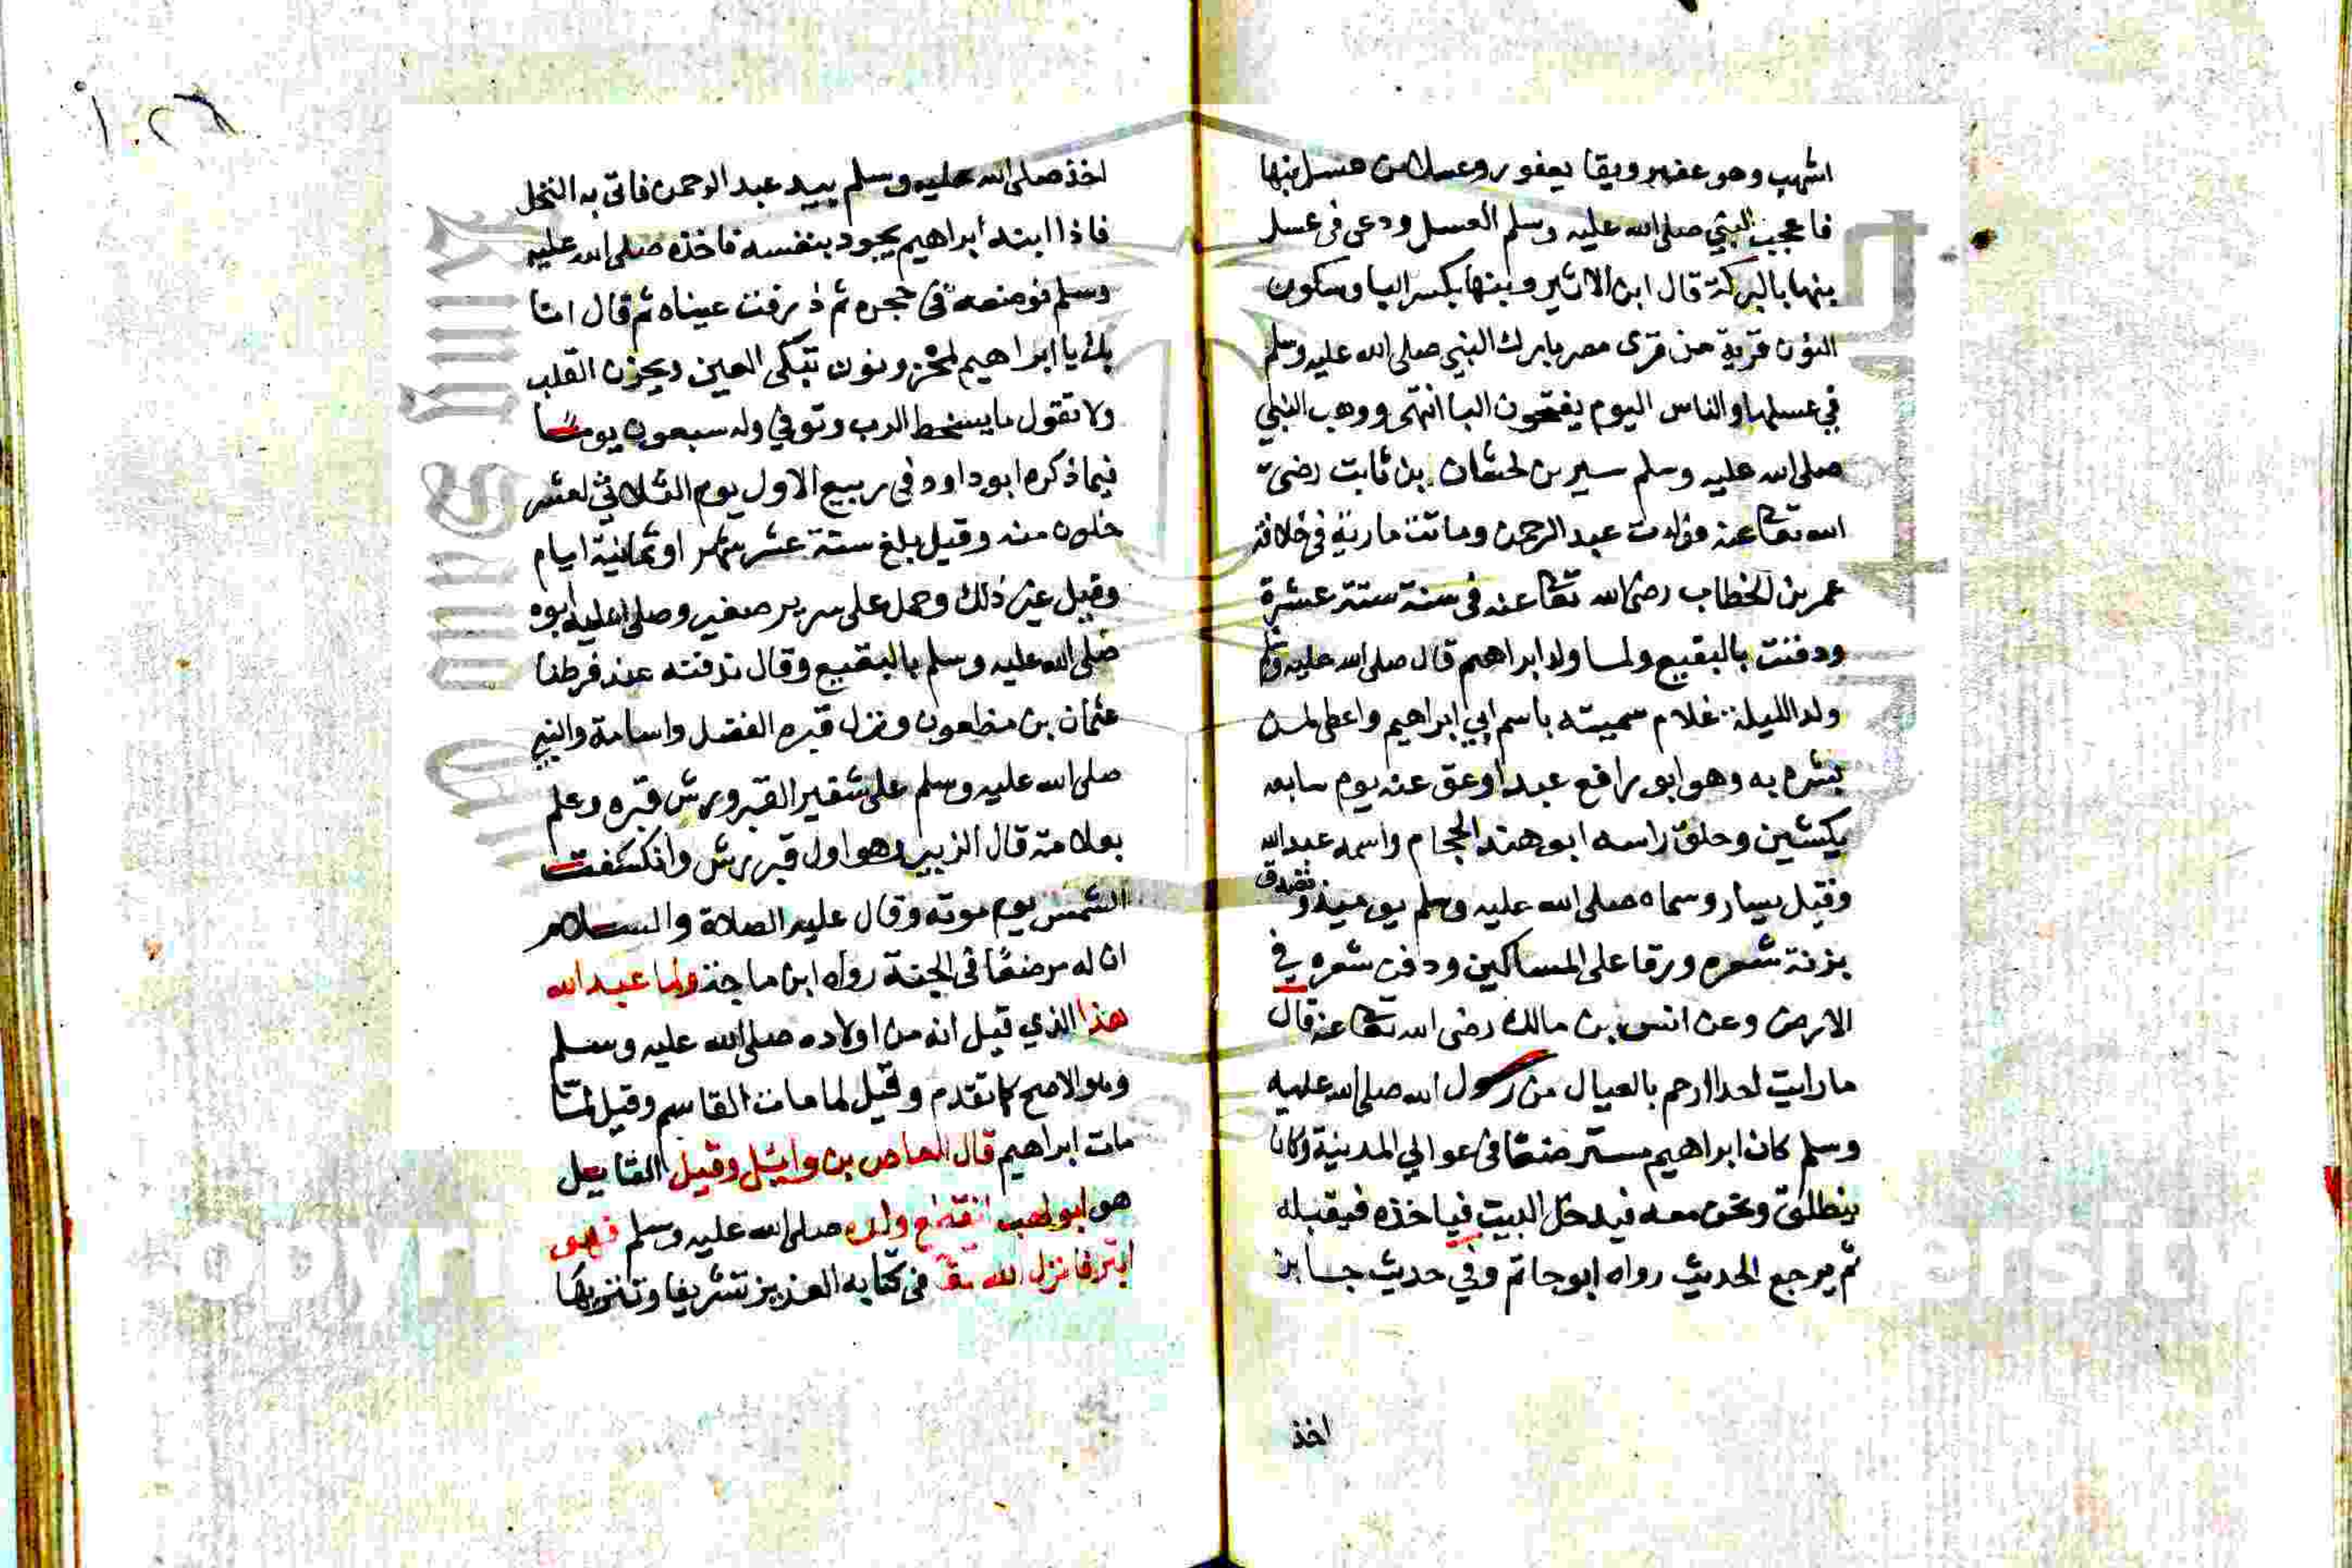 اشهب وهو عفير ويقا يعفور وعسلا من عسل بنها
فاعجب النبي صلى الله عليه وسلم العسل ودعى في عسل
بنها بالبركة قال ابن الاثير وبنها بكسر البا وسكون
النون قرية من قرى مصر بارك النبي صلى الله عليه وسلم
في عسلها والناس اليوم يفتحون البا انتهى ووهب النبي
صلى الله عليه وسلم سيرين لحسان بن ثابت رضى
الله تعا عنه فولدت عبد الرحمن وماتت مارية في خلافة
عمر بن الخطاب رضى الله تعا عنه في سنة ستة عشرة
ودفنت بالبقيع ولما ولد ابراهيم قال صلى الله عليه وسلم
ولد الليلة غلام سميته باسم ابي ابراهيم واعطى لمن
بشره به وهو ابو رافع عبدا وعق عنه يوم سابعه
بكبشين وحلق راسه ابو هند الحجام واسمه عبد الله
وقيل يسار وسماه صلى الله عليه وسلم يومئذ وتصدق
بزنة شعره ورقا على المساكين ودفن شعره في
الارض وعن انس بن مالك رضى الله تعا عنه قال
ما رايت احدا ارحم بالعيال من رسول الله صلى الله عليه
وسلم كان ابراهيم مسترضعا في عوالي المدينة وكان
ينطلق ونحن معه فيدخل البيت فياخذه فيقبله
ثم يرجع الحديث رواه ابو حاتم وفي حديث جابر
اخذ
اخذ صلى الله عليه وسلم بيد عبد الرحمن فاتى به النخل
فاذا ابنه ابراهيم يجود بنفسه فاخذه صلى الله عليه
وسلم فوضعه في حجره ثم ذرفت عيناه ثم قال انا
بك يا ابراهيم لمحزونون تبكى العين ويحزن القلب
ولا نقول ما يسخط الرب وتوفي وله سبعون يوما
فيما ذكره ابو داود في ربيع الاول يوم الثلاثي لعشر
خلون منه وقيل بلغ ستة عشر شهر او ثمانية ايام
وقيل غير ذلك وحمل على سرير صغير وصلى عليه ابوه
صلى الله عليه وسلم بالبقيع وقال ندفنه عند فرطنا
عثمان بن مظعون ونزل قبره الفضل واسامة والنبي
صلى الله عليه وسلم على شفير القبر ورش قبره وعلم
بعلامة قال الزبير وهو اول قبر رش وانكسفت
الشمس يوم موته وقال عليه الصلاة والسلام
ان له مرضعا في الجنة رواه ابن ماجة واما عبد الله
هذا الذي قيل انه من اولاده صلى الله عليه وسلم
وهو الاصح كما تقدم وقيل لما مات القاسم وقيل لما
مات ابراهيم قال العاص بن وايل وقيل القايل
هو ابو لهب انقطع ولده صلى الله عليه وسلم فهو
ابتر فانزل الله تعا في كتابه العزيز تشريفا وتنزيها